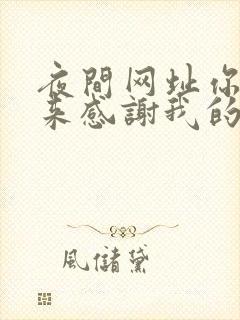 夜間网址你
来感謝我的
風儲黛